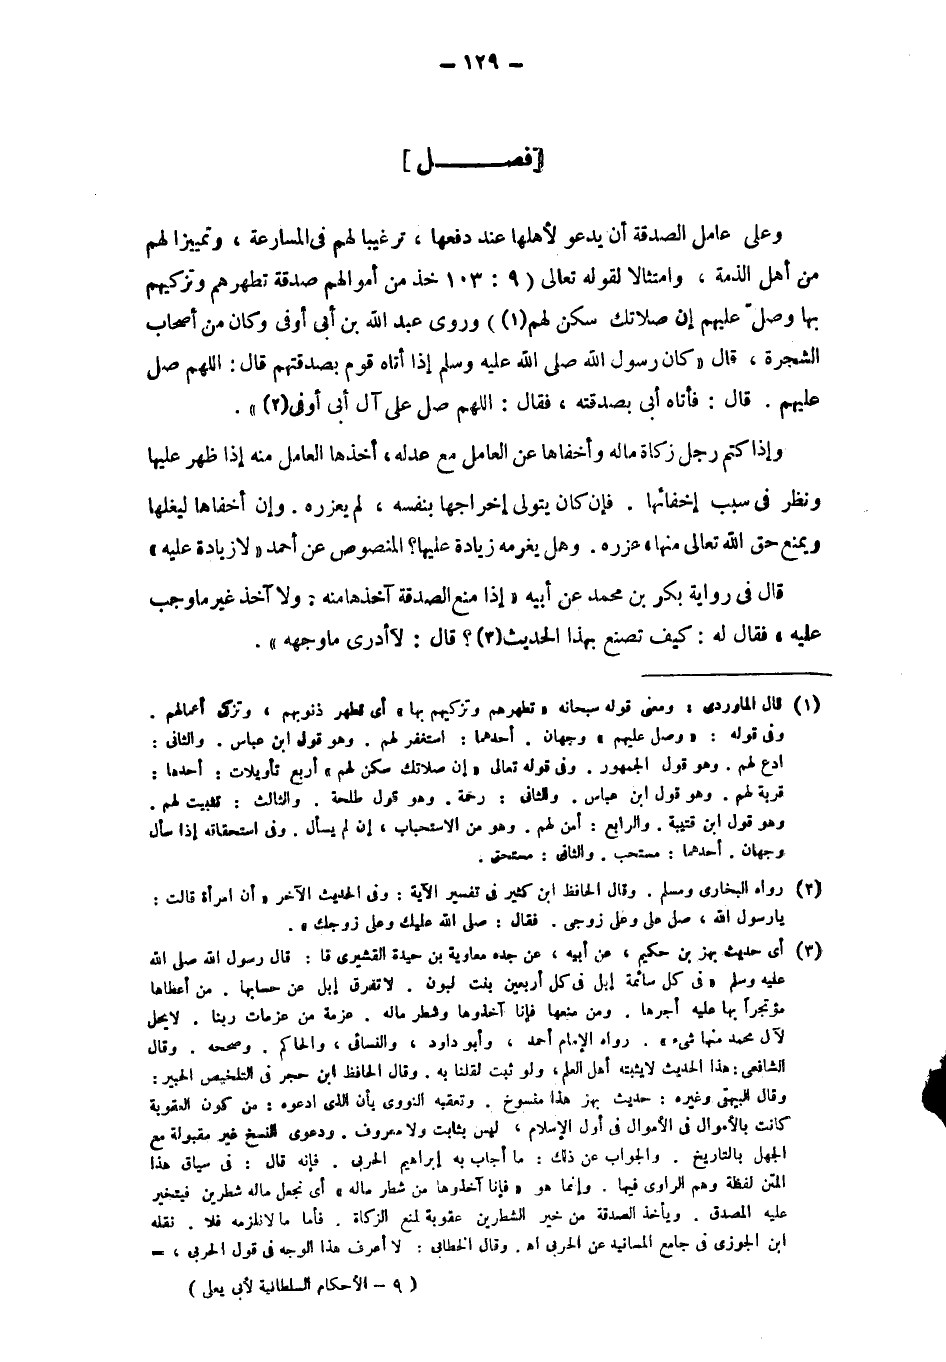 — ١٢٩ —
[فصـــــل]
وعلى عامل الصدقة أن يدعو لأهلها عند دفعها ، ترغيبا لهم فى المسارعة ، وتمييزا لهم
من أهل الذمة ، وامتثالا لقوله تعالى ( ٩ : ١٠٣ خذ من أموالهم صدقة تطهرهم وتزكيهم
بها وصلّ عليهم إن صلاتك سكن لهم(١) ) وروى عبد الله بن أبى أوفى وكان من أصحاب
الشجرة ، قال « كان رسول الله صلى الله عليه وسلم إذا أتاه قوم بصدقتهم قال : اللهم صل
عليهم . قال : فأتاه أبى بصدقته ، فقال : اللهم صل على آل أبى أوفى(٢) » .
وإذا كتم رجل زكاة ماله وأخفاها عن العامل مع عدله ، أخذها العامل منه إذا ظهر عليها
ونظر فى سبب إخفائها . فإن كان يتولى إخراجها بنفسه ، لم يعزره . وإن أخفاها ليغلها
ويمنع حق الله تعالى منها ، عزره . وهل يغرمه زيادة عليها؟ المنصوص عن أحمد « لا زيادة عليه »
قال فى رواية بكر بن محمد عن أبيه « إذا منع الصدقة آخذها منه : ولا آخذ غير ما وجب
عليه ، فقال له : كيف تصنع بهذا الحديث(٣) ؟ قال : لا أدرى ما وجهه » .
(١) قال الماوردى : ومعنى قوله سبحانه « تطهرهم وتزكيهم بها » أى تطهر ذنوبهم ، وتزكى أعمالهم .
وفى قوله : « وصل عليهم » وجهان . أحدهما : استغفر لهم . وهو قول ابن عباس . والثانى :
ادع لهم . وهو قول الجمهور . وفى قوله تعالى « إن صلاتك سكن لهم » أربع تأويلات : أحدها :
قربة لهم . وهو قول ابن عباس . والثانى : رحمة . وهو قول طلحة . والثالث : تثبيت لهم .
وهو قول ابن قتيبة . والرابع : أمن لهم . وهو من الاستحباب ، إن لم يسأل . وفى استحقاقه إذا سأل
وجهان . أحدهما : مستحب . والثانى : مستحق .
(٢) رواه البخارى ومسلم . وقال الحافظ ابن كثير فى تفسير الآية : وفى الحديث الآخر « أن امرأة قالت :
يارسول الله ، صل على وعلى زوجى . فقال : صلى الله عليك وعلى زوجك » .
(٣) أى حديث بهز بن حكيم ، عن أبيه ، عن جده معاوية بن حيدة القشيرى قا : قال رسول الله صلى الله
عليه وسلم « فى كل سائمة إبل فى كل أربعين بنت لبون . لا تفرق إبل عن حسابها . من أعطاها
مؤتجراً بها عليه أجرها . ومن منعها فإنا آخذوها وشطر ماله . عزمة من عزمات ربنا . لا يحل
لآل محمد منها شىء » . رواه الإمام أحمد ، وأبو داود ، والنسائى ، والحاكم . وصححه . وقال
الشافعى : هذا الحديث لا يثبته أهل العلم ، ولو ثبت لقلنا به . وقال الحافظ ابن حجر فى التلخيص الحبير :
وقال البيهقى وغيره : حديث بهز هذا منسوخ . وتعقبه النووى بأن الذى ادعوه : من كون العقوبة
كانت بالأموال فى الأموال فى أول الإسلام ، ليس بثابت ولا معروف . ودعوى النسخ غير مقبولة مع
الجهل بالتاريخ . والجواب عن ذلك : ما أجاب به إبراهيم الحربى . فإنه قال : فى سياق هذا
المتن لفظة وهم الراوى فيها . وإنما هو « فإنا آخذوها من شطر ماله » أى نجعل ماله شطرين فيتخير
عليه المصدق . ويأخذ الصدقة من خير الشطرين عقوبة لمنع الزكاة . فأما ما لا نلزمه فلا . نقله
ابن الجوزى فى جامع المسانيد عن الحربى اه . وقال الخطابى : لا أعرف هذا الوجه فى قول الحربى ، —
( ٩ – الأحكام السلطانية لأبى يعلى )